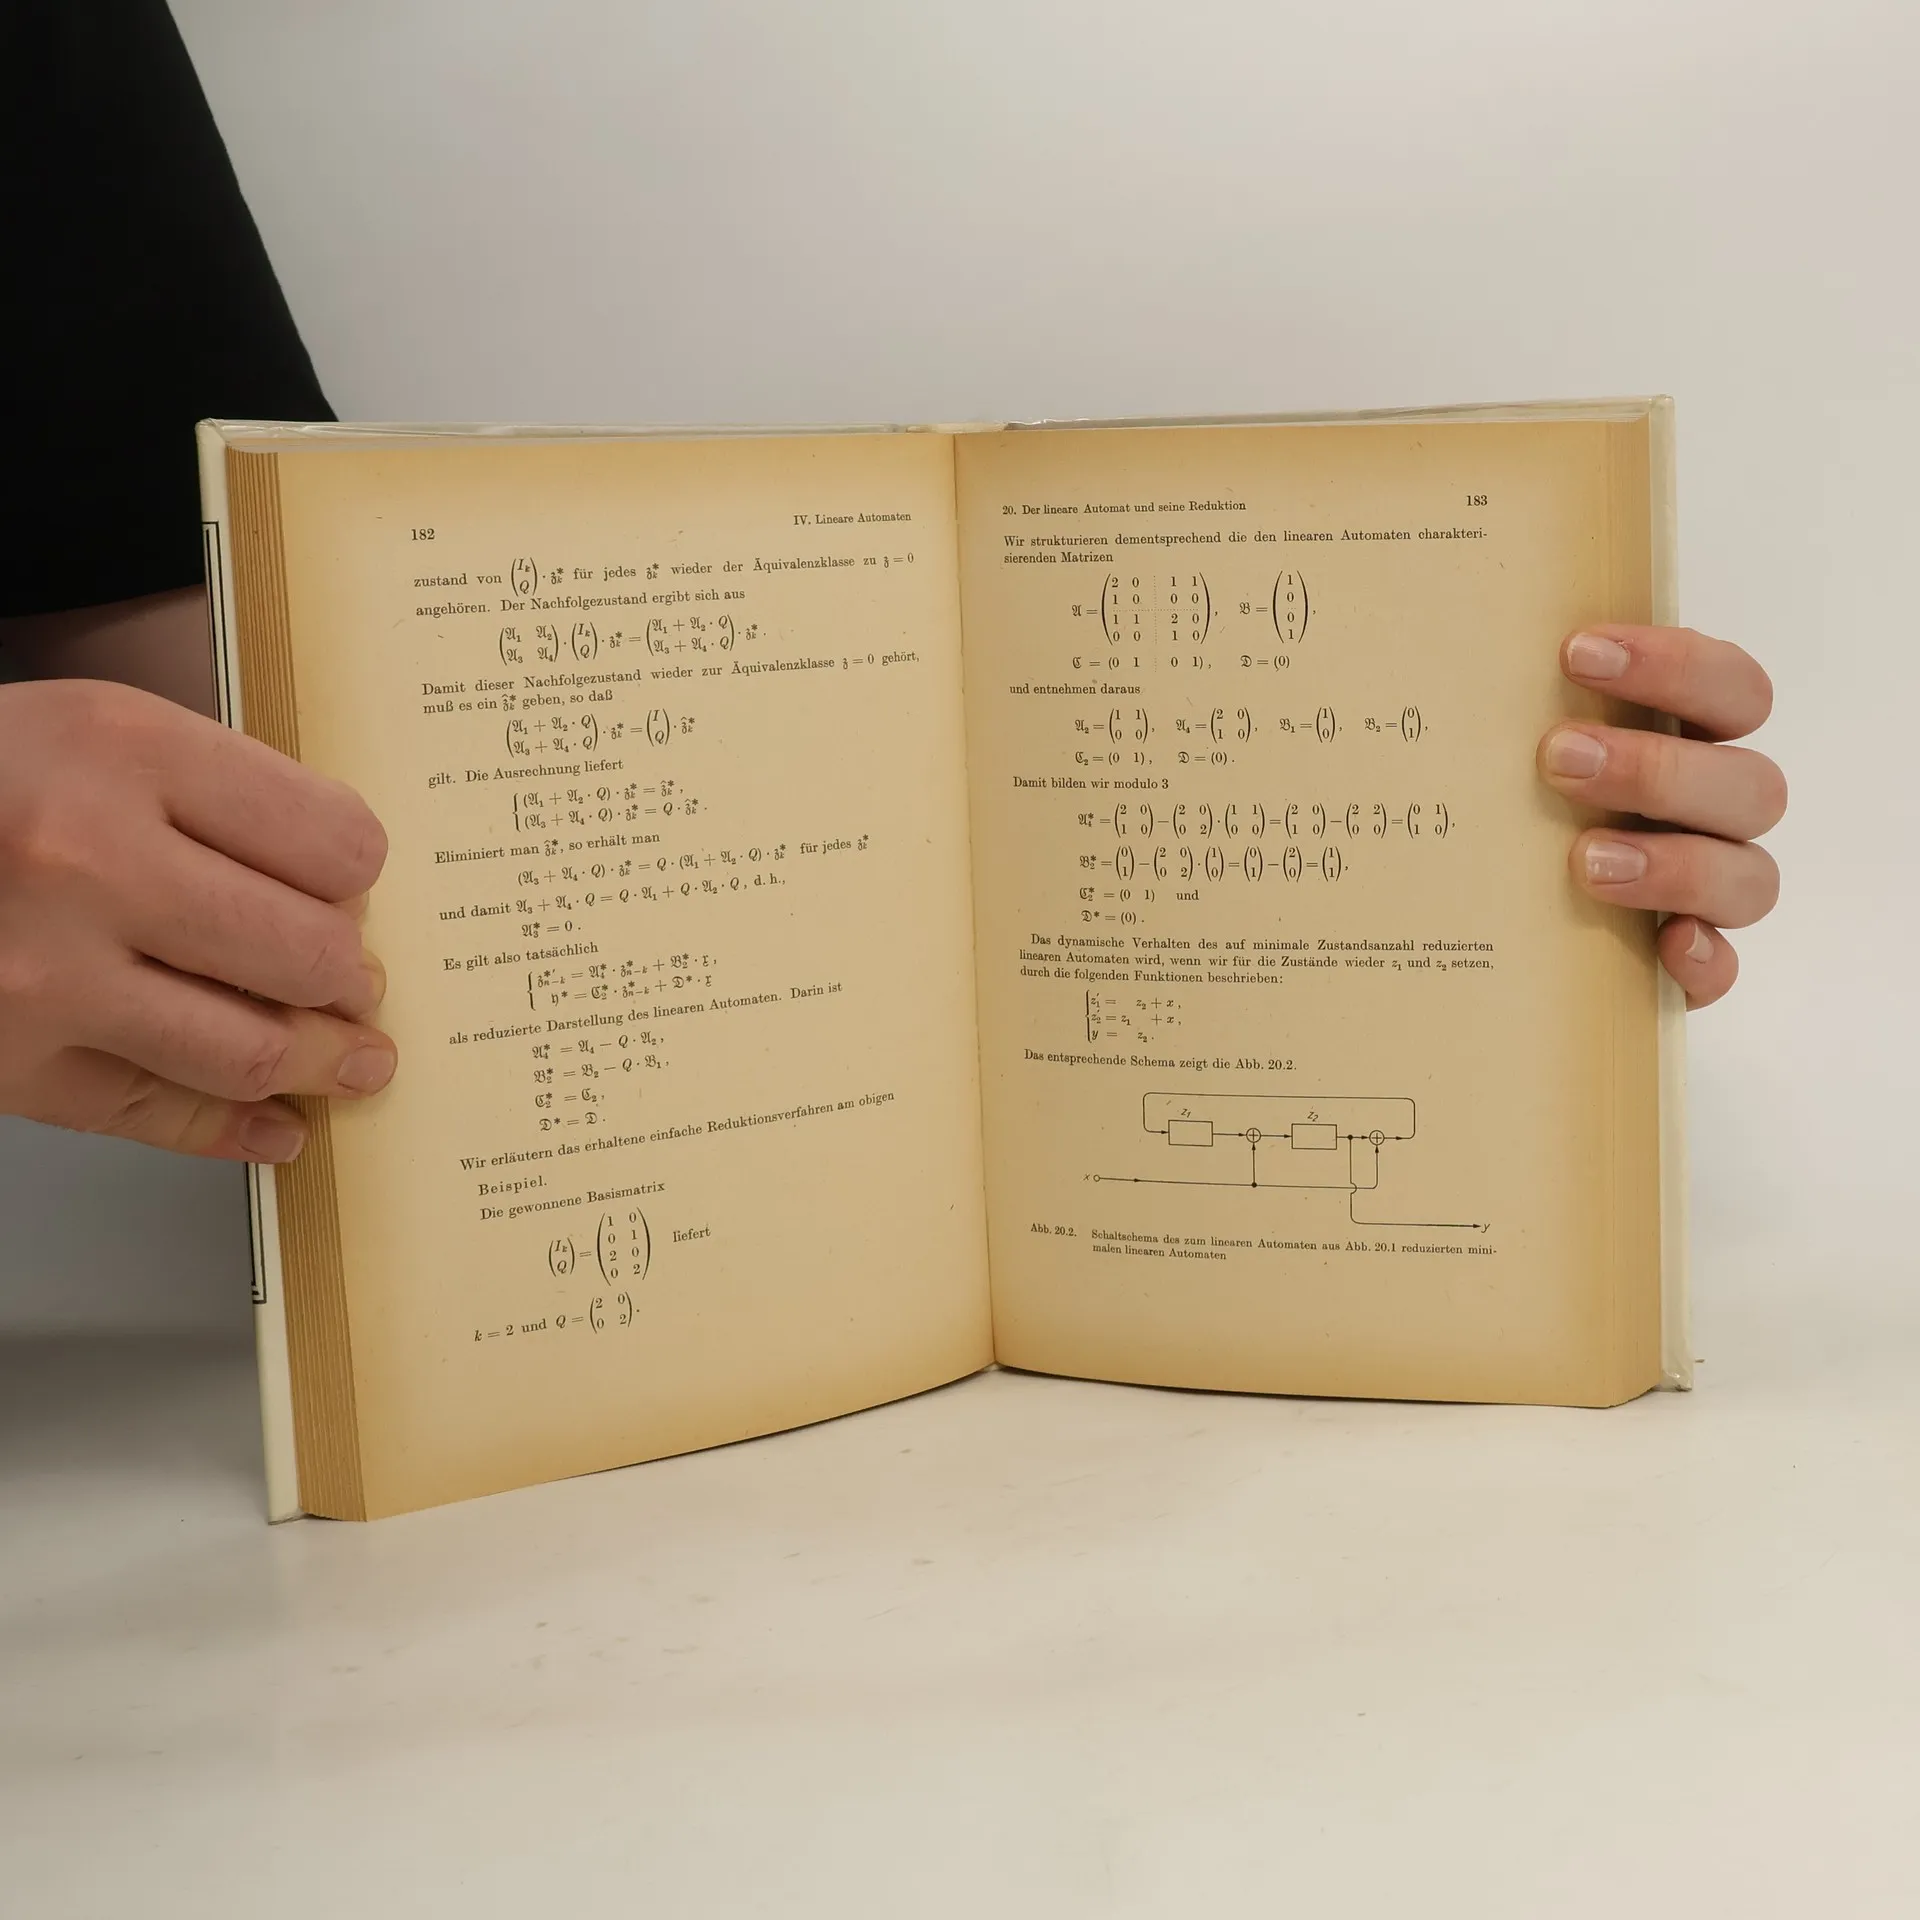 182
IV. Lineare Automaten
zustand von (I_k / Q) · 𝔷_k^* für jedes 𝔷_k^* wieder der Äquivalenzklasse zu 𝔷 = 0
angehören. Der Nachfolgezustand ergibt sich aus
(𝔄₁ 𝔄₂ / 𝔄₃ 𝔄₄) · (I_k / Q) · 𝔷_k^* = (𝔄₁ + 𝔄₂ · Q / 𝔄₃ + 𝔄₄ · Q) · 𝔷_k^* .
Damit dieser Nachfolgezustand wieder zur Äquivalenzklasse 𝔷 = 0 gehört,
muß es ein 𝔷̂_k^* geben, so daß
(𝔄₁ + 𝔄₂ · Q / 𝔄₃ + 𝔄₄ · Q) · 𝔷_k^* = (I / Q) · 𝔷̂_k^*
gilt. Die Ausrechnung liefert
{ (𝔄₁ + 𝔄₂ · Q) · 𝔷_k^* = 𝔷̂_k^* ,
(𝔄₃ + 𝔄₄ · Q) · 𝔷_k^* = Q · 𝔷̂_k^* .
Eliminiert man 𝔷̂_k^*, so erhält man
(𝔄₃ + 𝔄₄ · Q) · 𝔷_k^* = Q · (𝔄₁ + 𝔄₂ · Q) · 𝔷_k^* für jedes 𝔷_k^*
und damit 𝔄₃ + 𝔄₄ · Q = Q · 𝔄₁ + Q · 𝔄₂ · Q , d. h.,
𝔄₃^* = 0 .
Es gilt also tatsächlich
{ 𝔷_{n−k}^{*′} = 𝔄₄^* · 𝔷_{n−k}^* + 𝔅₂^* · 𝔵 ,
𝔶^* = ℭ₂^* · 𝔷_{n−k}^* + 𝔇^* · 𝔵
als reduzierte Darstellung des linearen Automaten. Darin ist
𝔄₄^* = 𝔄₄ − Q · 𝔄₂ ,
𝔅₂^* = 𝔅₂ − Q · 𝔅₁ ,
ℭ₂^* = ℭ₂ ,
𝔇^* = 𝔇 .
Wir erläutern das erhaltene einfache Reduktionsverfahren am obigen
Beispiel.
Die gewonnene Basismatrix
(I_k / Q) = (1 0 / 0 1 / 2 0 / 0 2) liefert
k = 2 und Q = (2 0 / 0 2) .
20. Der lineare Automat und seine Reduktion
183
Wir strukturieren dementsprechend die den linearen Automaten charakteri-
sierenden Matrizen
𝔄 = (2 0 1 1 / 1 0 0 0 / 1 1 2 0 / 0 0 1 0) , 𝔅 = (1 / 0 / 0 / 1) ,
ℭ = (0 1 0 1) , 𝔇 = (0)
und entnehmen daraus
𝔄₂ = (1 1 / 0 0) , 𝔄₄ = (2 0 / 1 0) , 𝔅₁ = (1 / 0) , 𝔅₂ = (0 / 1) ,
ℭ₂ = (0 1) , 𝔇 = (0) .
Damit bilden wir modulo 3
𝔄₄^* = (2 0 / 1 0) − (2 0 / 0 2) · (1 1 / 0 0) = (2 0 / 1 0) − (2 2 / 0 0) = (0 1 / 1 0) ,
𝔅₂^* = (0 / 1) − (2 0 / 0 2) · (1 / 0) = (0 / 1) − (2 / 0) = (1 / 1) ,
ℭ₂^* = (0 1) und
𝔇^* = (0) .
Das dynamische Verhalten des auf minimale Zustandsanzahl reduzierten
linearen Automaten wird, wenn wir für die Zustände wieder z₁ und z₂ setzen,
durch die folgenden Funktionen beschrieben:
{ z₁′ = z₂ + x ,
z₂′ = z₁ + x ,
y = z₂ .
Das entsprechende Schema zeigt die Abb. 20.2.
z₁ z₂
x
y
Abb. 20.2. Schaltschema des zum linearen Automaten aus Abb. 20.1 reduzierten mini-
malen linearen Automaten